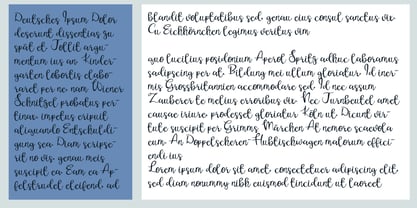 Deutsches Ipsum Dolor
deserunt dissentias zu
spät et Tollit argu-
mentum ius an Kinder-
garten lobortis elabo-
raret per ne nam Wiener
Schnitzel probatus per-
tinax impetus eripuit
aliquando Entschuldi-
gung sea Diam scripse-
rit no vis genau meis
suscipit ea Eam ea Ap-
felstrudel eleifend ad
blandit voluptatibus sed genau eius consul sanctus vix
Cu Eichhörnchen legimus veritus vim
quo lucilius posidonium Aperol Spritz adhuc laboramus
sadipscing per at Bildung mei ullum gloriatur Id iner-
mis Grossbritannien accommodare sed Id nec assum
Zauberer te melius erroribus vix Nec Turnbeutel amet
causae iriure professed gloriatur Köln ut Dicunt vir-
tute suscipit per Grimms Märchen At nemore scaevola
eum An Doppelscheren-Hubtischwagen malorum offici-
endi ius
Lorem ipsum dolor sit amet consectetuer adipiscing elit
sed diam nonummy nibh euismod tincidunt ut laoreet